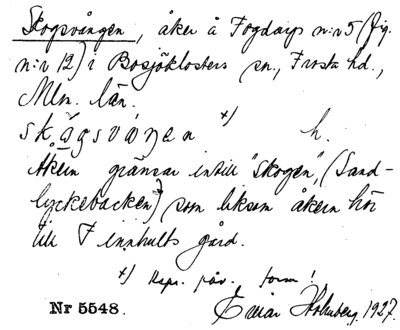 Skogsvången, åker å Fogdarp n:r 5 (fig.
n:r 12) i Bosjöklosters sn, Frosta hd.,
Mlm. län.
skågsvåŋen x) h.
Åkern gränsar intill "skogen", (Sand-
lyckebacken) som liksom åkern hör
till Finnhults gård.
x) Uspr. företr. form!
Nr 5548. Einar Holmberg. 1927.